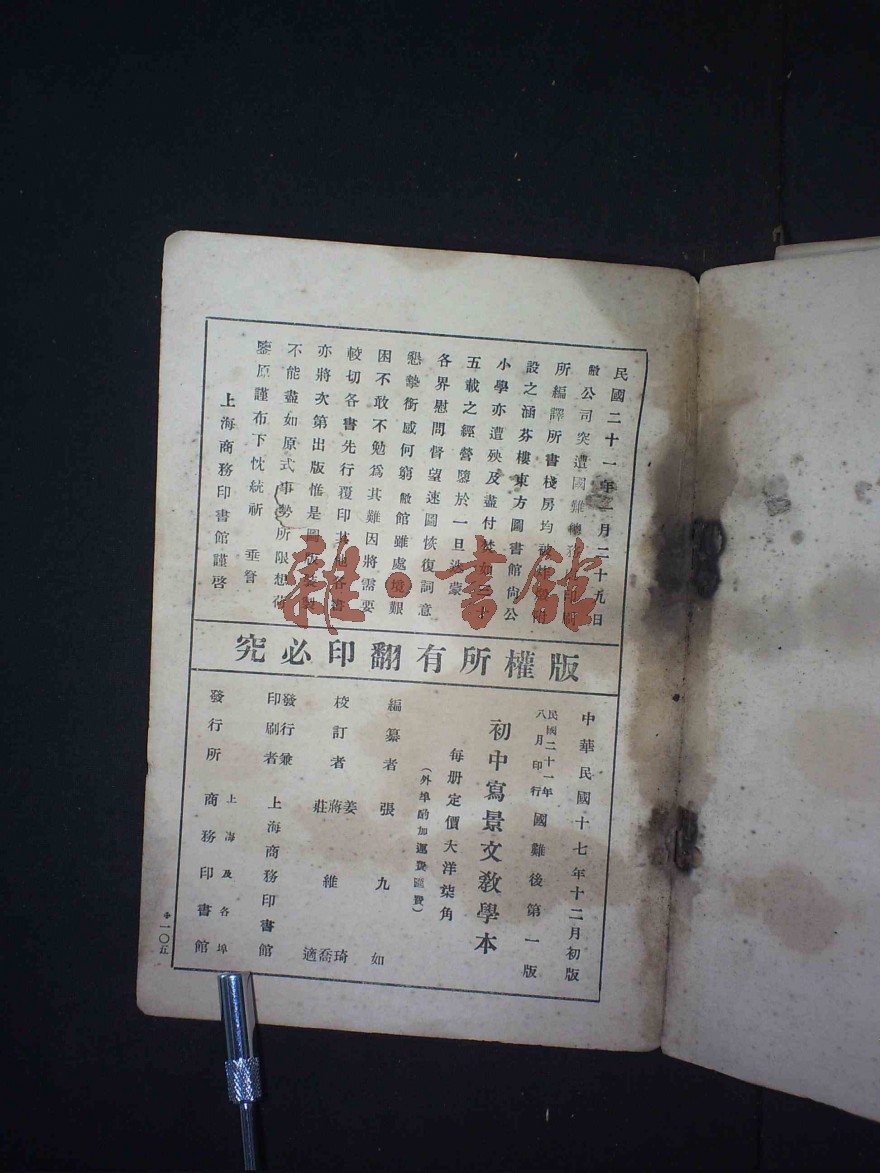 民國二十一年一月二十九日
敝公司突遭國難
所編譯所書棧房均被炸燬附
設之涵芬樓東方圖書館尙公
小學亦遭殃及盡付焚如三十
五載之經營隳於一旦迭蒙
各界慰問督望速圖恢復詞意
懇摯銜感何窮敝館雖處境艱
困不敢不勉爲其難因將需要
較切各書先行覆印其他各書
亦將次第出版惟是圖版裝製
不能盡如原式事勢所限想荷
鑒原謹布下忱統祈 垂詧
上海商務印書館謹啓
版權所有翻印必究
中華民國十七年十二月初版
民國二十一年八月印行 國難後第一版
初中寫景文敎學本
每册定價大洋柒角
(外埠酌加運費匯費)
編纂者 張九如
校訂者 姜琦 蔣維喬 莊適
發行兼印刷者 上海商務印書館
發行所 上海及各埠 商務印書館
一〇五
雜·書館